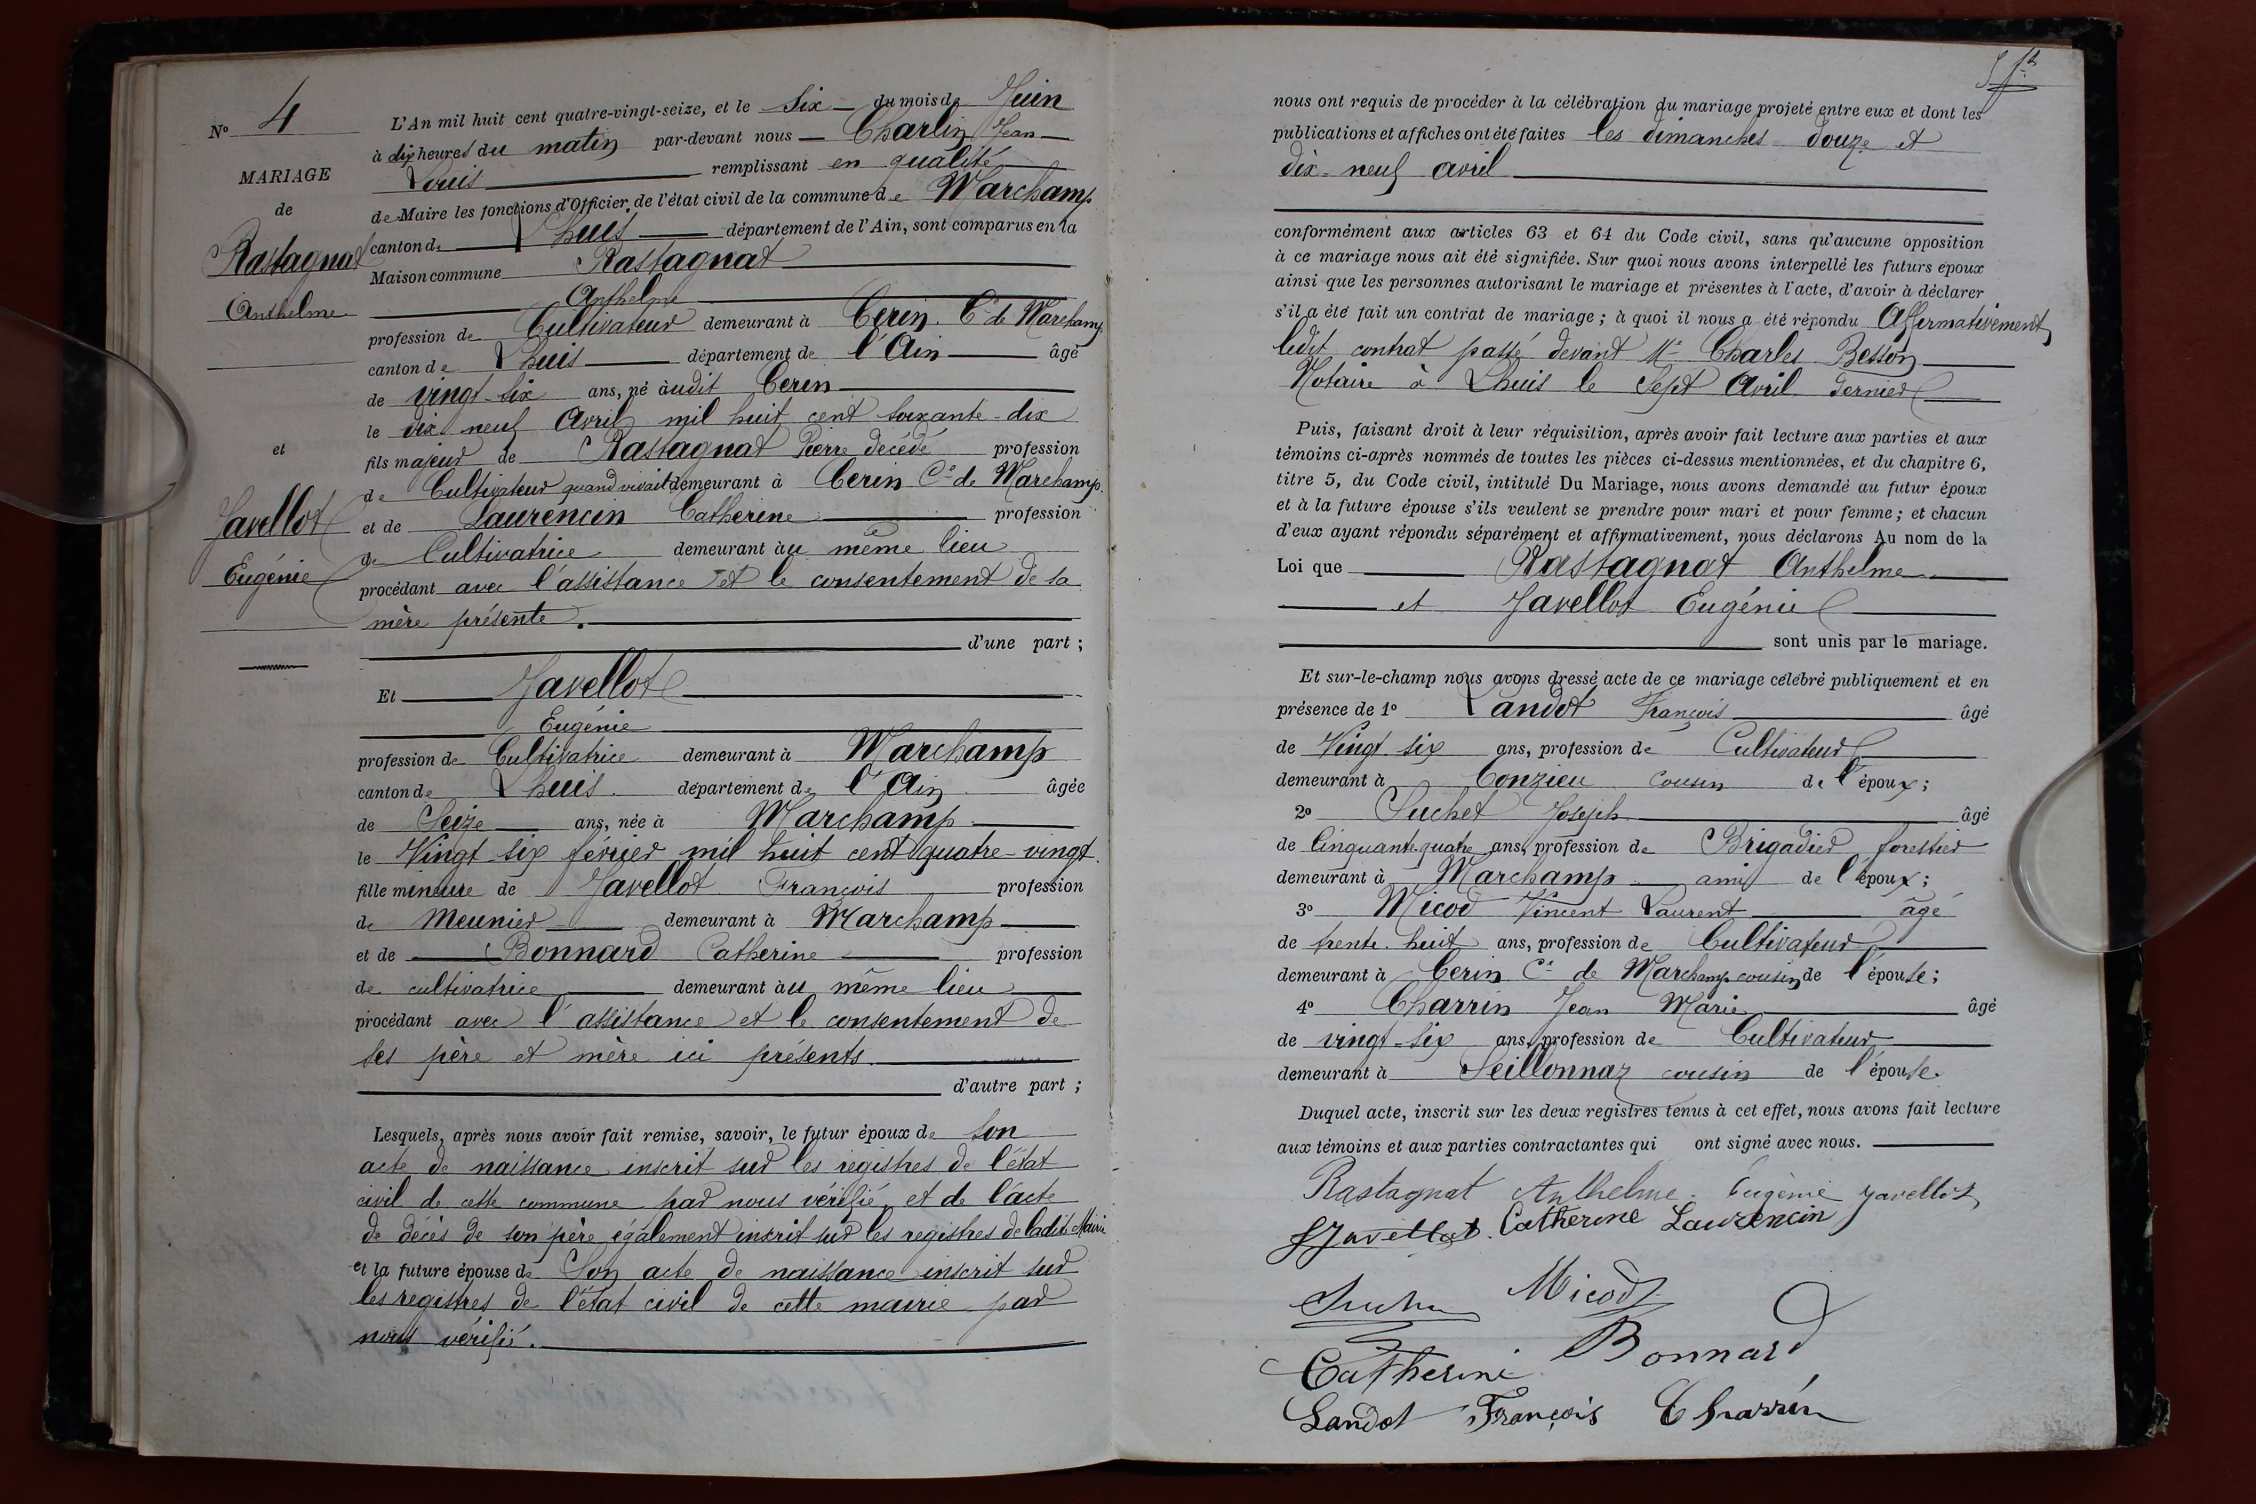 N° 4
MARIAGE
de
Rastagnat
Anthelme
et
Javellot
Eugénie
L'An mil huit cent quatre-vingt-seize, et le Six du mois de Juin
à dix heures du matin par-devant nous Charlin Jean
Louis remplissant en qualité
de Maire les fonctions d'Officier de l'état civil de la commune de Marchamp
canton de Lhuis département de l'Ain, sont comparus en la
Maison commune Rastagnat
Anthelme
profession de Cultivateur demeurant à Cerin. Cne de Marchamp
canton de Lhuis département de l'Ain âgé
de vingt-six ans, né àudit Cerin
le dix neuf Avril mil huit cent soixante-dix
fils majeur de Rastagnat Pierre décédé profession
de Cultivateur quand vivait demeurant à Cerin Cne de Marchamp.
et de Laurencin Catherine profession
de Cultivatrice demeurant àu même lieu
procédant avec l'assistance et le consentement de sa
mère présente.
d'une part ;
Et Javellot
Eugénie
profession de Cultivatrice demeurant à Marchamp
canton de Lhuis. département de l'Ain âgée
de Seize ans, née à Marchamp
le Vingt six février mil huit cent quatre-vingt.
fille mineure de Javellot François profession
de Meunier demeurant à Marchamp
et de Bonnard Catherine profession
de cultivatrice demeurant àu même lieu
procédant avec l'assistance et le consentement de
ses père et mère ici présents.
d'autre part ;
Lesquels, après nous avoir fait remise, savoir, le futur époux de son
acte de naissance inscrit sur les registres de l'état
civil de cette commune par nous vérifié, et de l'acte
de décès de son père également inscrit sur les registres de ladite Mairie
et la future épouse de Son acte de naissance inscrit sur
les registres de l'état civil de cette mairie par
nous vérifié.
nous ont requis de procéder à la célébration du mariage projeté entre eux et dont les
publications et affiches ont été faites les dimanches douze et
dix-neuf avril
conformément aux articles 63 et 64 du Code civil, sans qu'aucune opposition
à ce mariage nous ait été signifiée. Sur quoi nous avons interpellé les futurs époux
ainsi que les personnes autorisant le mariage et présentes à l'acte, d'avoir à déclarer
s'il a été fait un contrat de mariage ; à quoi il nous a été répondu Affirmativement
ledit contrat passé devant Me Charles Besson
Notaire à Lhuis le Sept Avril dernier
Puis, faisant droit à leur réquisition, après avoir fait lecture aux parties et aux
témoins ci-après nommés de toutes les pièces ci-dessus mentionnées, et du chapitre 6,
titre 5, du Code civil, intitulé Du Mariage, nous avons demandé au futur époux
et à la future épouse s'ils veulent se prendre pour mari et pour femme ; et chacun
d'eux ayant répondu séparément et affirmativement, nous déclarons Au nom de la
Loi que Rastagnat Anthelme
et Javellot Eugénie
sont unis par le mariage.
Et sur-le-champ nous avons dressé acte de ce mariage célébré publiquement et en
présence de 1° Landot François âgé
de Vingt six ans, profession de Cultivateur
demeurant à Conzieu cousin de l'époux ;
2° Suchet Joseph âgé
de Cinquante-quatre ans, profession de Brigadier forestier
demeurant à Marchamp ami de l'époux ;
3° Micod Vincent Laurent âgé
de trente-huit ans, profession de Cultivateur
demeurant à Cerin Cne de Marchamp cousin de l'épouse ;
4° Charrin Jean Marie âgé
de vingt-six ans, profession de Cultivateur
demeurant à Seillonnaz cousin de l'épouse.
Duquel acte, inscrit sur les deux registres tenus à cet effet, nous avons fait lecture
aux témoins et aux parties contractantes qui ont signé avec nous.
Rastagnat Anthelme. Eugènie Javellot
Javellot. Catherine Laurencin
Micod
Catherine Bonnard
Landot François Charrin